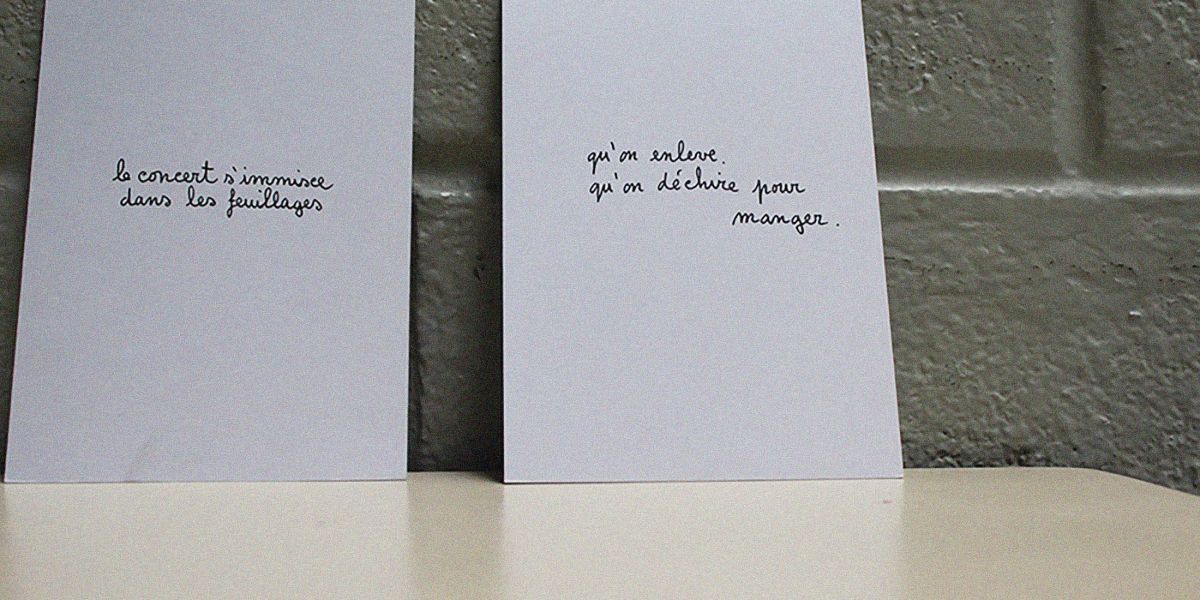 le concert s'immisce
dans les feuillages
qu'on enleve.
qu'on déchire pour
manger.